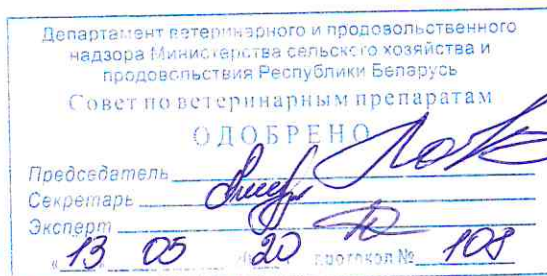 Департамент ветеринарного и продовольственного
надзора Министерства сельского хозяйства и
продовольствия Республики Беларусь
Совет по ветеринарным препаратам
ОДОБРЕНО
Председатель
Секретарь
Эксперт
«13» 05 20 протокол № 108